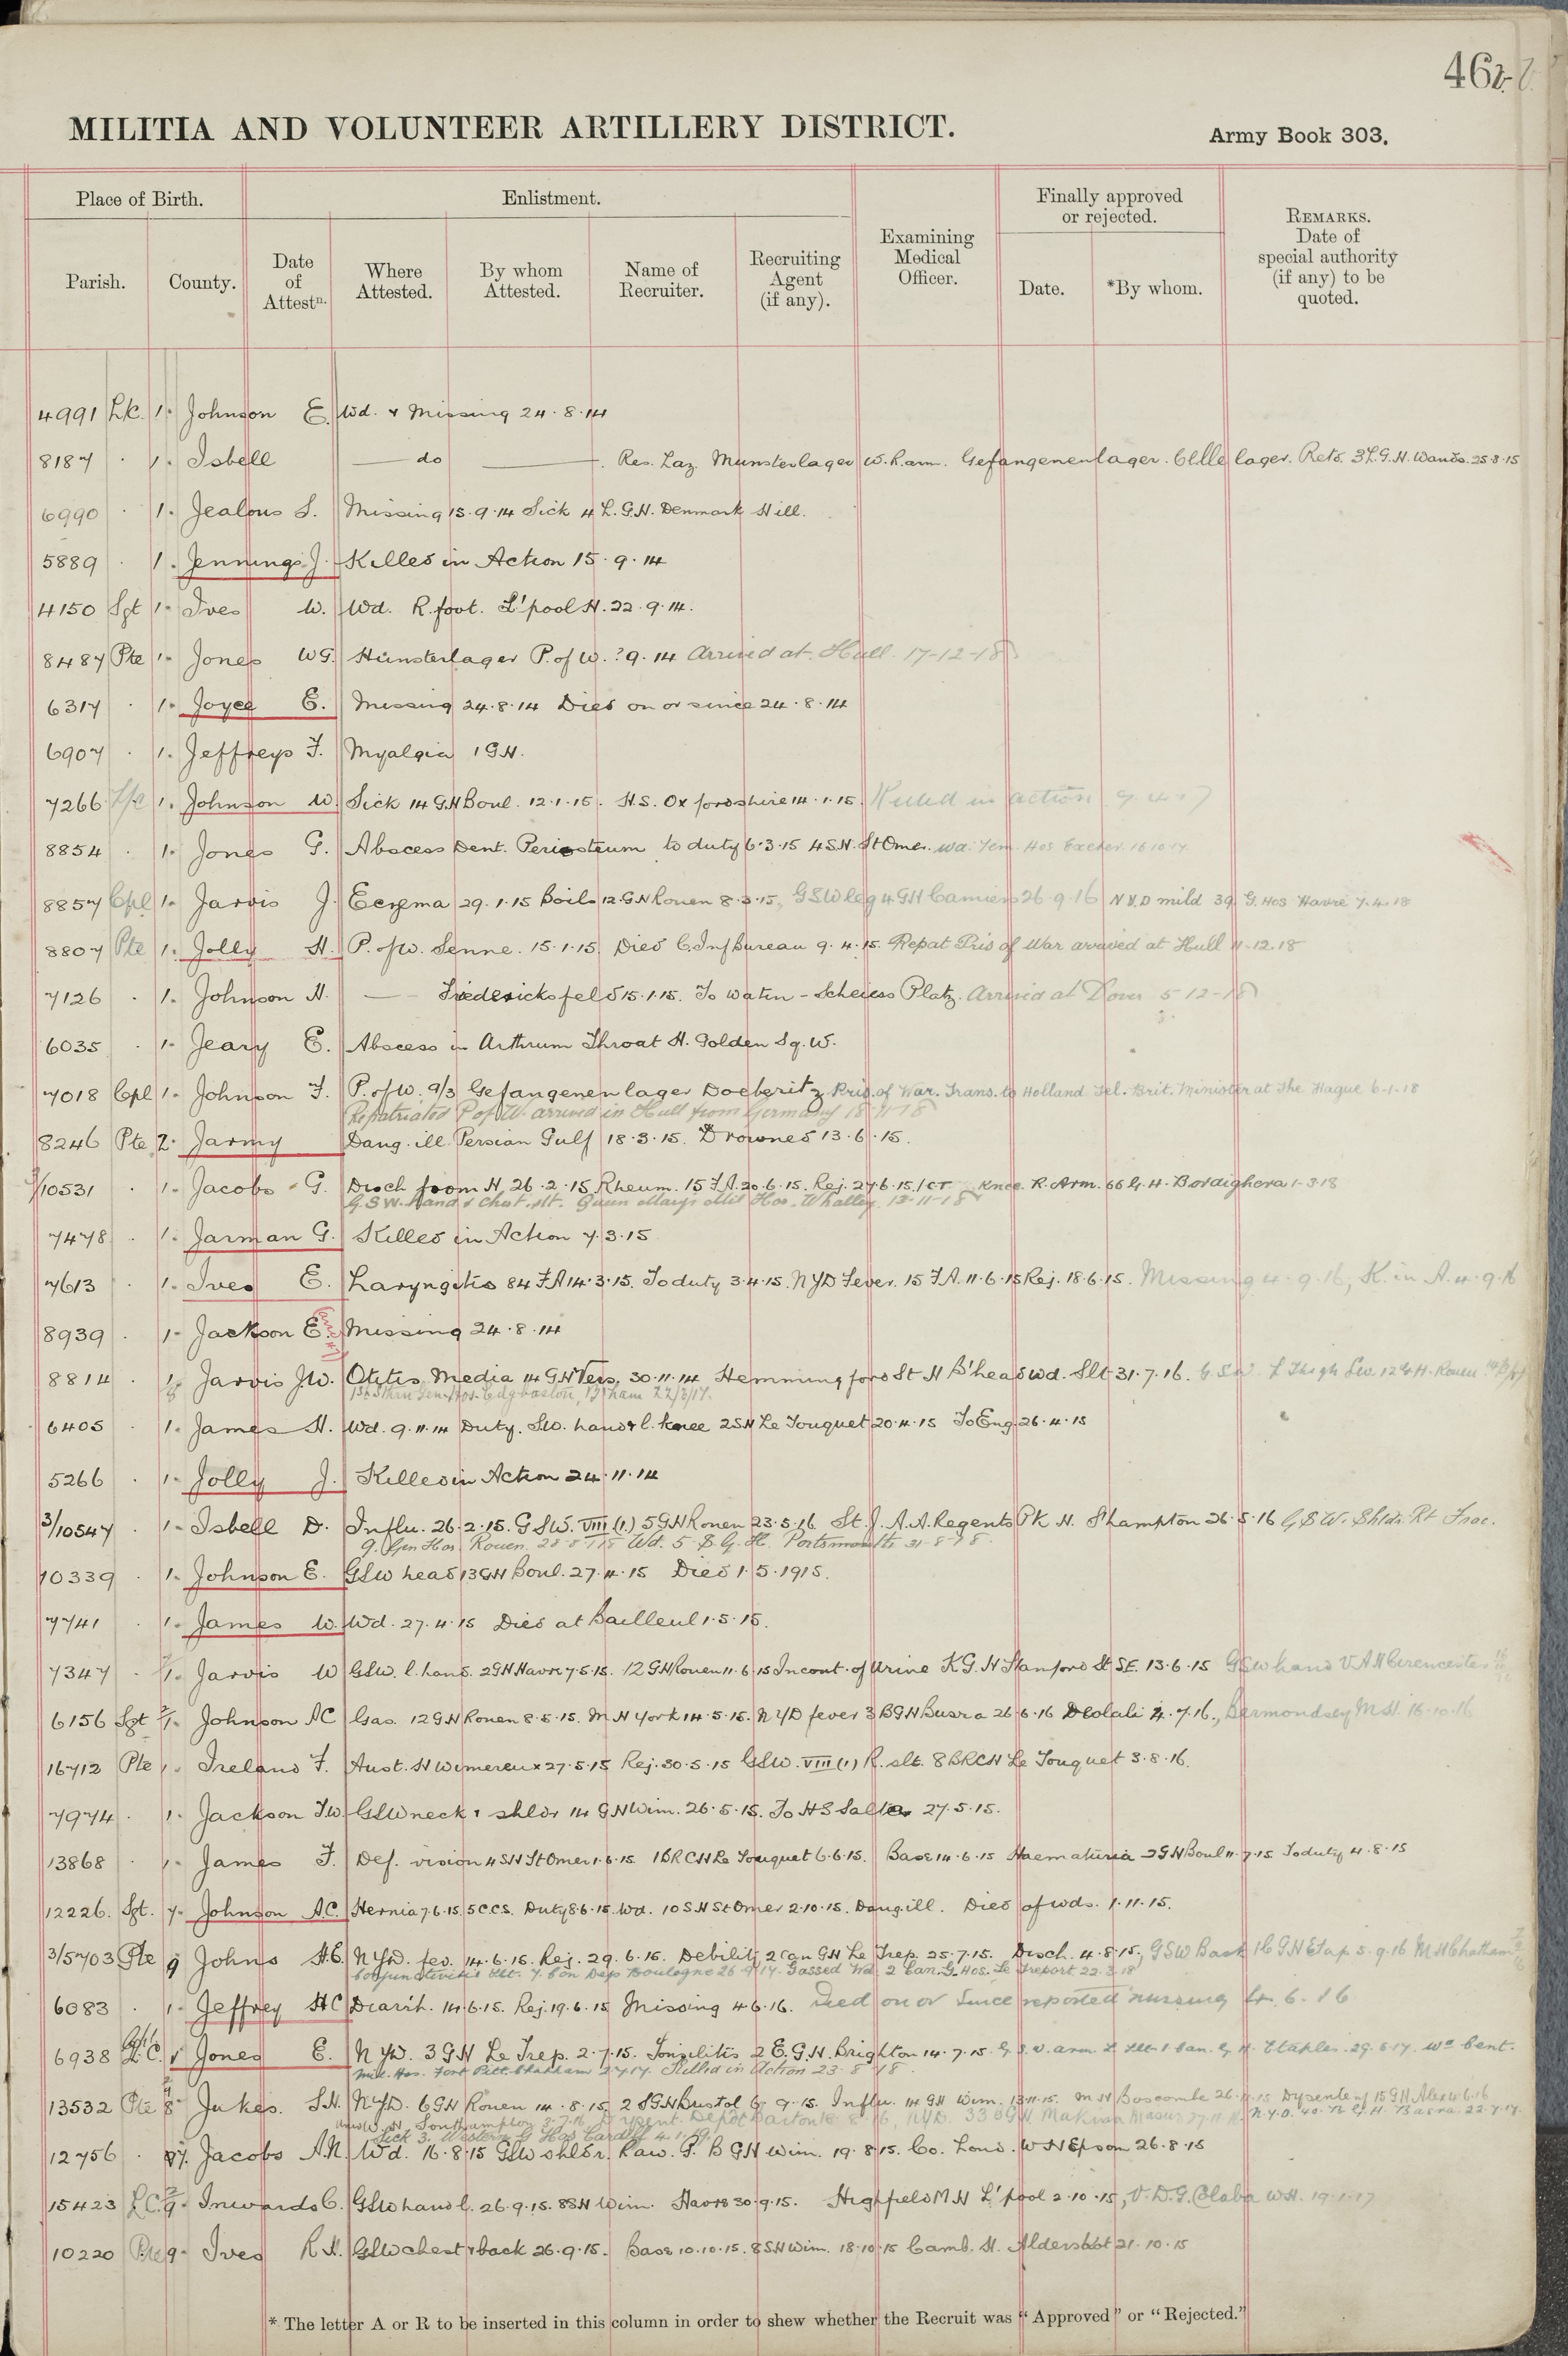 46
MILITIA AND VOLUNTEER ARTILLERY DISTRICT.
Army Book 303.
Place of Birth.
Enlistment.
Finally approved or rejected.
Parish.
County.
Date of Attestn.
Where Attested.
By whom Attested.
Name of Recruiter.
Recruiting Agent (if any).
Examining Medical Officer.
Date.
*By whom.
REMARKS. Date of special authority (if any) to be quoted.
4991 L/C. 1. Johnson E. Wd. & Missing 24.8.14
8187 . 1. Isbell — do —. Res. Laz. Munsterlager W. R. arm. Gefangenenlager. Celle lager. Retd. 3 L.G.H. Wands. 25.8.15
6990 . 1. Jealous S. Missing 15.9.14 Sick 4 L.G.H. Denmark Hill.
5889 . 1. Jennings J. Killed in Action 15.9.14
4150 Sgt 1. Ives W. Wd. R. foot. L'pool H. 22.9.14.
8487 Pte 1. Jones WG. Münsterlager P. of W. ? 9.14 Arrived at Hull. 17-12-18
6317 . 1. Joyce E. Missing 24.8.14 Died on or since 24.8.14
6907 . 1. Jeffreys F. Myalgia 1 G.H.
7266 L/c 1. Johnson W. Sick 14 G.H Boul. 12.1.15. H.S. Oxfordshire 14.1.15. Killed in action 9.4.17
8854 . 1. Jones G. Abscess Dent. Periosteum to duty 6.3.15 4 S.H. St Omer. Wd. Hos Exeter. 16.10.17
8857 Cpl 1. Jarvis J. Eczema 29.1.15 Boils 12 G.H Rouen 8.3.15, GSW leg 4 GH Camiers 26.9.16 N.Y.D mild 39 G. Hos Havre 7.4.18
8807 Pte 1. Jolly H. P. of W. Senne. 15.1.15. Died C. Inf Bureau 9.4.15. Repat Pris of War arrived at Hull 11-12.18
7126 . 1. Johnson H. — Friedericksfeld 15.1.15. To Waten - Scheiess Platz. Arrived at Dover 5-12-18
6035 . 1. Jeary E. Abscess in Arthrum Throat H. Golden Sq. W.
7018 Cpl 1. Johnson F. P. of W. 9/3 Gefangenenlager Doeberitz Pris. of War. Trans. to Holland Tel. Brit. Minister at The Hague 6-1-18
Repatriated P of W. arrived in Hull from Germany 18-11-18
8246 Pte 2. Jarmy Dang. ill. Persian Gulf 18.3.15. Drowned 13.6.15.
3/10531 . 1. Jacobs G. Disch from H. 26.2.15 Rheum. 15 F.A. 20.6.15. Rej. 27.6.15. knee R. Arm. 66 G.H. Bordighera 1-3-18
G.S.W. Hand & Chest. slt. Queen Mary's Mil Hos. Whalley 12-11-18
7478 . 1. Jarman G. Killed in Action 7.3.15
7613 . 1. Ives E. Laryngitis 84 F.A 14.3.15. To duty 3.4.15. NYD Fever. 15 F.A. 11.6.15 Rej. 18.6.15. Missing 4.9.16, K. in A. 4.9.16
8939 . 1. Jackson E. Missing 24.8.14
8814 . Jarvis J.W. Otitis Media 14 G.H Vers. 30.11.14 Hemmingford St H B'head Wd. Slt 31.7.16. G.S.W. L Thigh Sev. 12 G.H. Rouen
1st Sthn Gen. Hos. Edgbaston, B'ham 22/3/17.
6405 . 1. James H. Wd. 9.11.14 Duty. S.W. hand & l. knee 2 SH Le Touquet 20.4.15 To Eng. 26.4.15
5266 . 1. Jolly J. Killed in Action 24.11.14
3/10547 . 1. Isbell D. Influ. 26.2.15. G.S.W. VIII (1.) 5 G.H Rouen 23.5.16. St. J. A.A. Regents Pk H. S'hampton 26.5.16 G.S.W. Shldr. Rt Frac.
9. Gen Hos. Rouen. Wd. 5 S.G.H. Portsmouth 31-8-18.
10339 . 1. Johnson E. GSW head 13 GH Boul. 27.4.15 Died 1.5.1915.
7741 . 1. James W. Wd. 27.4.15 Died at Bailleul 1.5.15.
7347 . 1. Jarvis W GSW. l. hand. 2 GH Havre 7.5.15. 12 GH Rouen 11.6.15 Incont. of Urine K.G.H Stanford St S.E. 13.6.15 GSW hand V.A.H Cirencester
6156 Sgt 2/1. Johnson AC Gas. 12 G.H Rouen 8.5.15. M H York 14.5.15. NYD fever 3 BGH Busra 26.6.16 Deolali 4.7.16., Bermondsey M.H. 16.10.16
16712 Pte 1. Ireland F. Aust. H Wimereux 27.5.15 Rej. 30.5.15 GSW. VIII (1) R. slt. 8 BRCH Le Touquet 3.8.16.
7974 . 1. Jackson F.W. GSW neck & shldr 14 G.H Wim. 26.5.15. To HS Salta 27.5.15.
13868 . 1. James F. Def. vision 4 SH St Omer 1.6.15 1 BRCH Le Touquet 6.6.15. Base 14.6.15 Haematuria 2 G.H Boul 11.7.15 To duty 4.8.15
12226. Sgt. 7. Johnson A.C. Hernia 7.6.15. 5 CCS. Duty 8.6.15. Wd. 10 S.H St Omer 2.10.15. Dang. ill. Died of wds. 1.11.15.
3/5703 Pte 9 Johns H.E. NYD. fev. 14.6.15. Rej. 29.6.15. Debility 2 Can GH Le Trep. 25.7.15. Disch. 4.8.15, GSW Back 16 G.H Etap 5.9.16 M H Chatham
Conjunctivitis slt. 7. Con Dep Boulogne 26.9.17. Gassed Wd. 2 Can. G. Hos. Le Treport 22.3.18
6083 . 1. Jeffrey HC Diarrh. 14.6.15. Rej. 19.6.15 Missing 4.6.16. Died on or since reported missing 4.6.16
6938 L.C. 1 Jones E. NYD. 3 GH Le Trep. 2.7.15. Tonsilitis 2 E.G.H. Brighton 14.7.15. G.S.W. arm. L slt 1 Can. G H. Etaples. 29.6.17. Wd Cont.
Mil. Hos. Fort Pitt. Chatham 2.7.17. Killed in Action 23-8-18.
13532 Pte 8 Jukes. S.H. NYD. 6 GH Rouen 14.8.15, 2 SGH Bristol 6.9.15. Influ. 14 GH Wim. 13.11.15. M H Boscombe Dysentery 15 G.H. Alex 4.6.16
Southampton 3.7.16. Depot N.Y.D. 33 BGH Makina Masus N.Y.D. 40. B.G.H. Basra. 22.7.17.
Sick 3. Western G Hos Cardiff 4.1.19.
12756 . 7. Jacobs A.N. Wd. 16.8.15 GSW shldr. Raw. P. B G.H Wim. 19.8.15. Co. Lond. W H Epsom 26.8.15
15423 L.C. 9. Inwards C. GSW hand l. 26.9.15. 8 SH Wim. Havre 30.9.15. Highfield M H L'pool 2.10.15, V.D.G. Colaba W.H. 19.1.17
10220 Pte 9. Ives R.H. GSW chest & back 26.9.15. Base 10.10.15. 8 S.H Wim. 18.10.15 Camb. H. Aldershot 21.10.15
* The letter A or R to be inserted in this column in order to shew whether the Recruit was "Approved" or "Rejected."